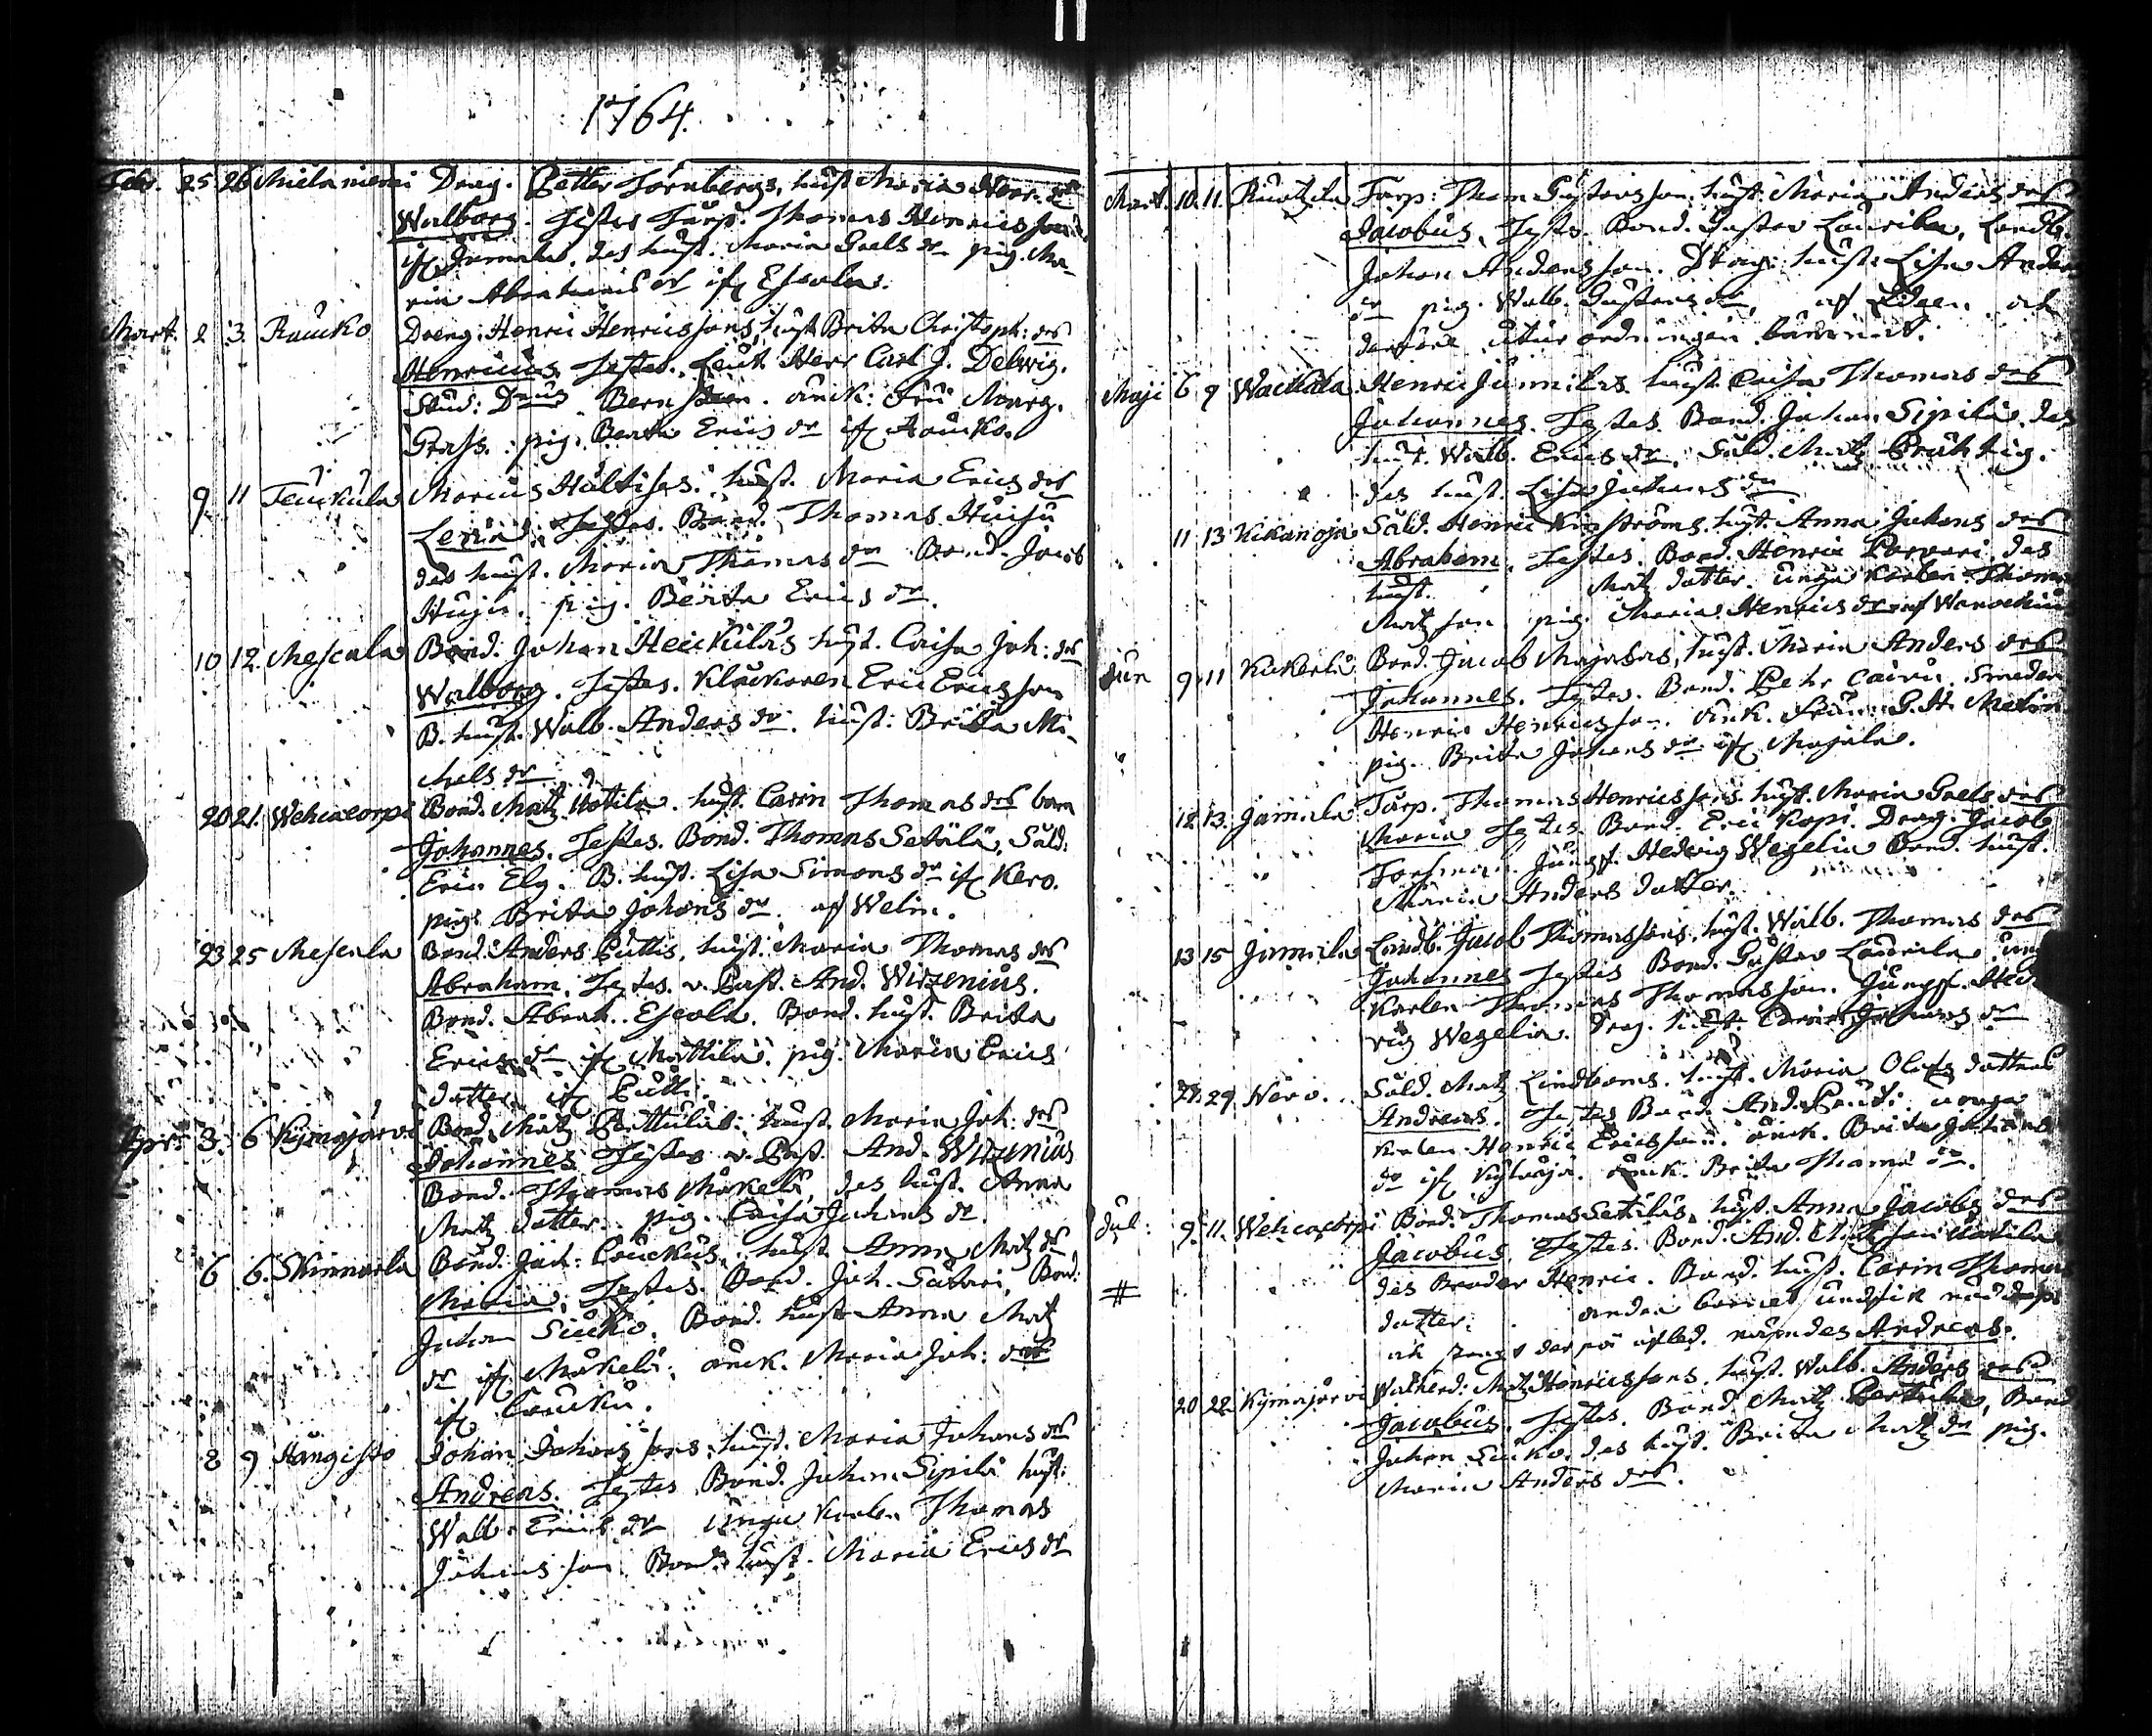 1764.
Febr. 25 26 Mielaniemi Drag. Petter Törnbergs, hust. Maria Henr. dr
Walborg. Testes Torp. Thomas Henricsson
if Jamila, des hust. Maria Graels dr pig. Ma-
ria Abrahams dr if Escola.
Mart. 2 3. Raucko Dreng. Henric Henricssons, hust. Brita Christoph: dr
Henricus Testes. Leut. Herr Carl J. Delwig.
Stud: Bern enck: Fru Marg.
Grass. pig. Berta Erics dr if Raucko.
9 11 Teuckula Marcus Hultis hust. Maria Erics dr
Lena. Testes. Bond. Thomas Huisu
des hust. Maria Thomas dr Bond. Jacob
Huju. pig. Berta Erics dr.
10 12. Mescala Bond. Johan Heickiläs hust. Caisa Joh: dr
Walborg. Testes. Klåckaren Eric Ericsson
B. hust. Walb. Anders dr. hust: Brita Mi-
chels dr
20 21. Wehcacorpi Bond. Matz Hotila. hust. Carin Thomas dr barn
Johannes. Testes. Bond. Thomas Setälä, Sold.
Eric Elg. B. hust. Lisa Simons dr if Kero.
pig. Brita Johans dr. af Welin.
23 25 Mescala Bond. Anders Puttis, hust. Maria Thomas dr
Abraham. Testes. v. Past. And. Wirzenius.
Bond. Abrah. Escola. Bond. hust. Brita
Erics dr if Mattila. pig. Maria Erics
datter if Putti.
Apr. 3. 6 Kymajärvi Bond. Matz Perttuläs: hust. Maria Joh: dr
Johannes Testes v. Past. And. Wirzenius
Bond. Thomas Mäkelä, des hust. Anna
Matz datter. pig. Caisa Johans dr.
6 6. Skinnarla Bond. Joh: Couckus, hust. Anna Matz dr
Maria. Testes. Bond. Joh. Sätari, Bond.
Johan Siucko. Bond. hust. Anna Matz
dr if Mäkelä. enck. Maria Joh: dr
if Coucku.
8 9 Hangisto Johan Johanssons, hust. Maria Johans dr
Andreas. Testes Bond. Johan Sipilä hust:
Walb. Erics dr unga Karlen Thomas
Johansson Bond. hust. Maria Erics dr
Mart. 10. 11. Ruotzila Torp: Thom Gustavsson, hust. Maria Anders dr
Jacobus. Testes. Bond. Gustav Lauvila, Landb.
Johan Andersson. Drag: hust. Lisa Anders
dr pig. Walb. Gustavs dr, och
derföre utur ordningen
Maji 6 9 Wackula Henric Junnilas hust. Caisa Thomas dr
Johannes. Testes. Bond. Johan Sipilä. des
hust. Walb. Erics dr. Sold. Matz Brühtig.
des hust. Lisa Johans dr
11 13 Kikanoja Sold. Henric hust. Anna Johans dr
Abraham. Testes. Bond. Henric Parvari, des
hust. Matz datter. unga Karlen Thomas
Matzson pig. Maria Henrics dr af
Jun 9. 11 Kickerlä Bond. Jacob Majalas, hust. Maria Anders dr
Johannes. Testes. Bond. Petr Smeden
Henric Henricsson. enck. Fru G. H. Melin
pig. Brita Johans dr if Majala.
12 13. Jamila Torp. Thomas Henricssons hust. Maria Graels dr
Maria Testes. Bond. Eric Kopi. Drag. Jacob
Forsman. Jungf. Hedwig Wegelia Bond. hust.
Maria Anders datter.
13 15 Jamila Landb. Jacob Thomassons, hust. Walb. Thomas dr
Johannes Testes Bond. Gustav Lauvila, unga
Karlen Thomas Thomasson. Jungf. Hed-
vig Wegelia. Drag. hust. Carin Johans dr
27. 29 Nero. Sold. Matz Lindboms. hust. Maria Olofs datters
Andreas. Testes Bond. And. unga
Karlen Henric Ericsson. enck. Brita Johans
dr if enck. Brita Thoma dr.
Jul: 9. 11. Wehcacorpi Bond. Thomas Setäläs, hust. Anna Jacobs dr
Jacobus. Testes. Bond. And. Hotila
des Broder Henric. Bond. hust. Carin Thomas
# datter. andra barnet undfick nöddop
och strax der på afled. nämndes Andreas.
20 22. Kymajärvi Matz Henricssons, hust. Walb. Anders dr
Jacobus. Testes. Bond. Matz Perttula, Bond
Johan Siucko, des hust. Brita Matz dr pig.
Maria Anders dr.